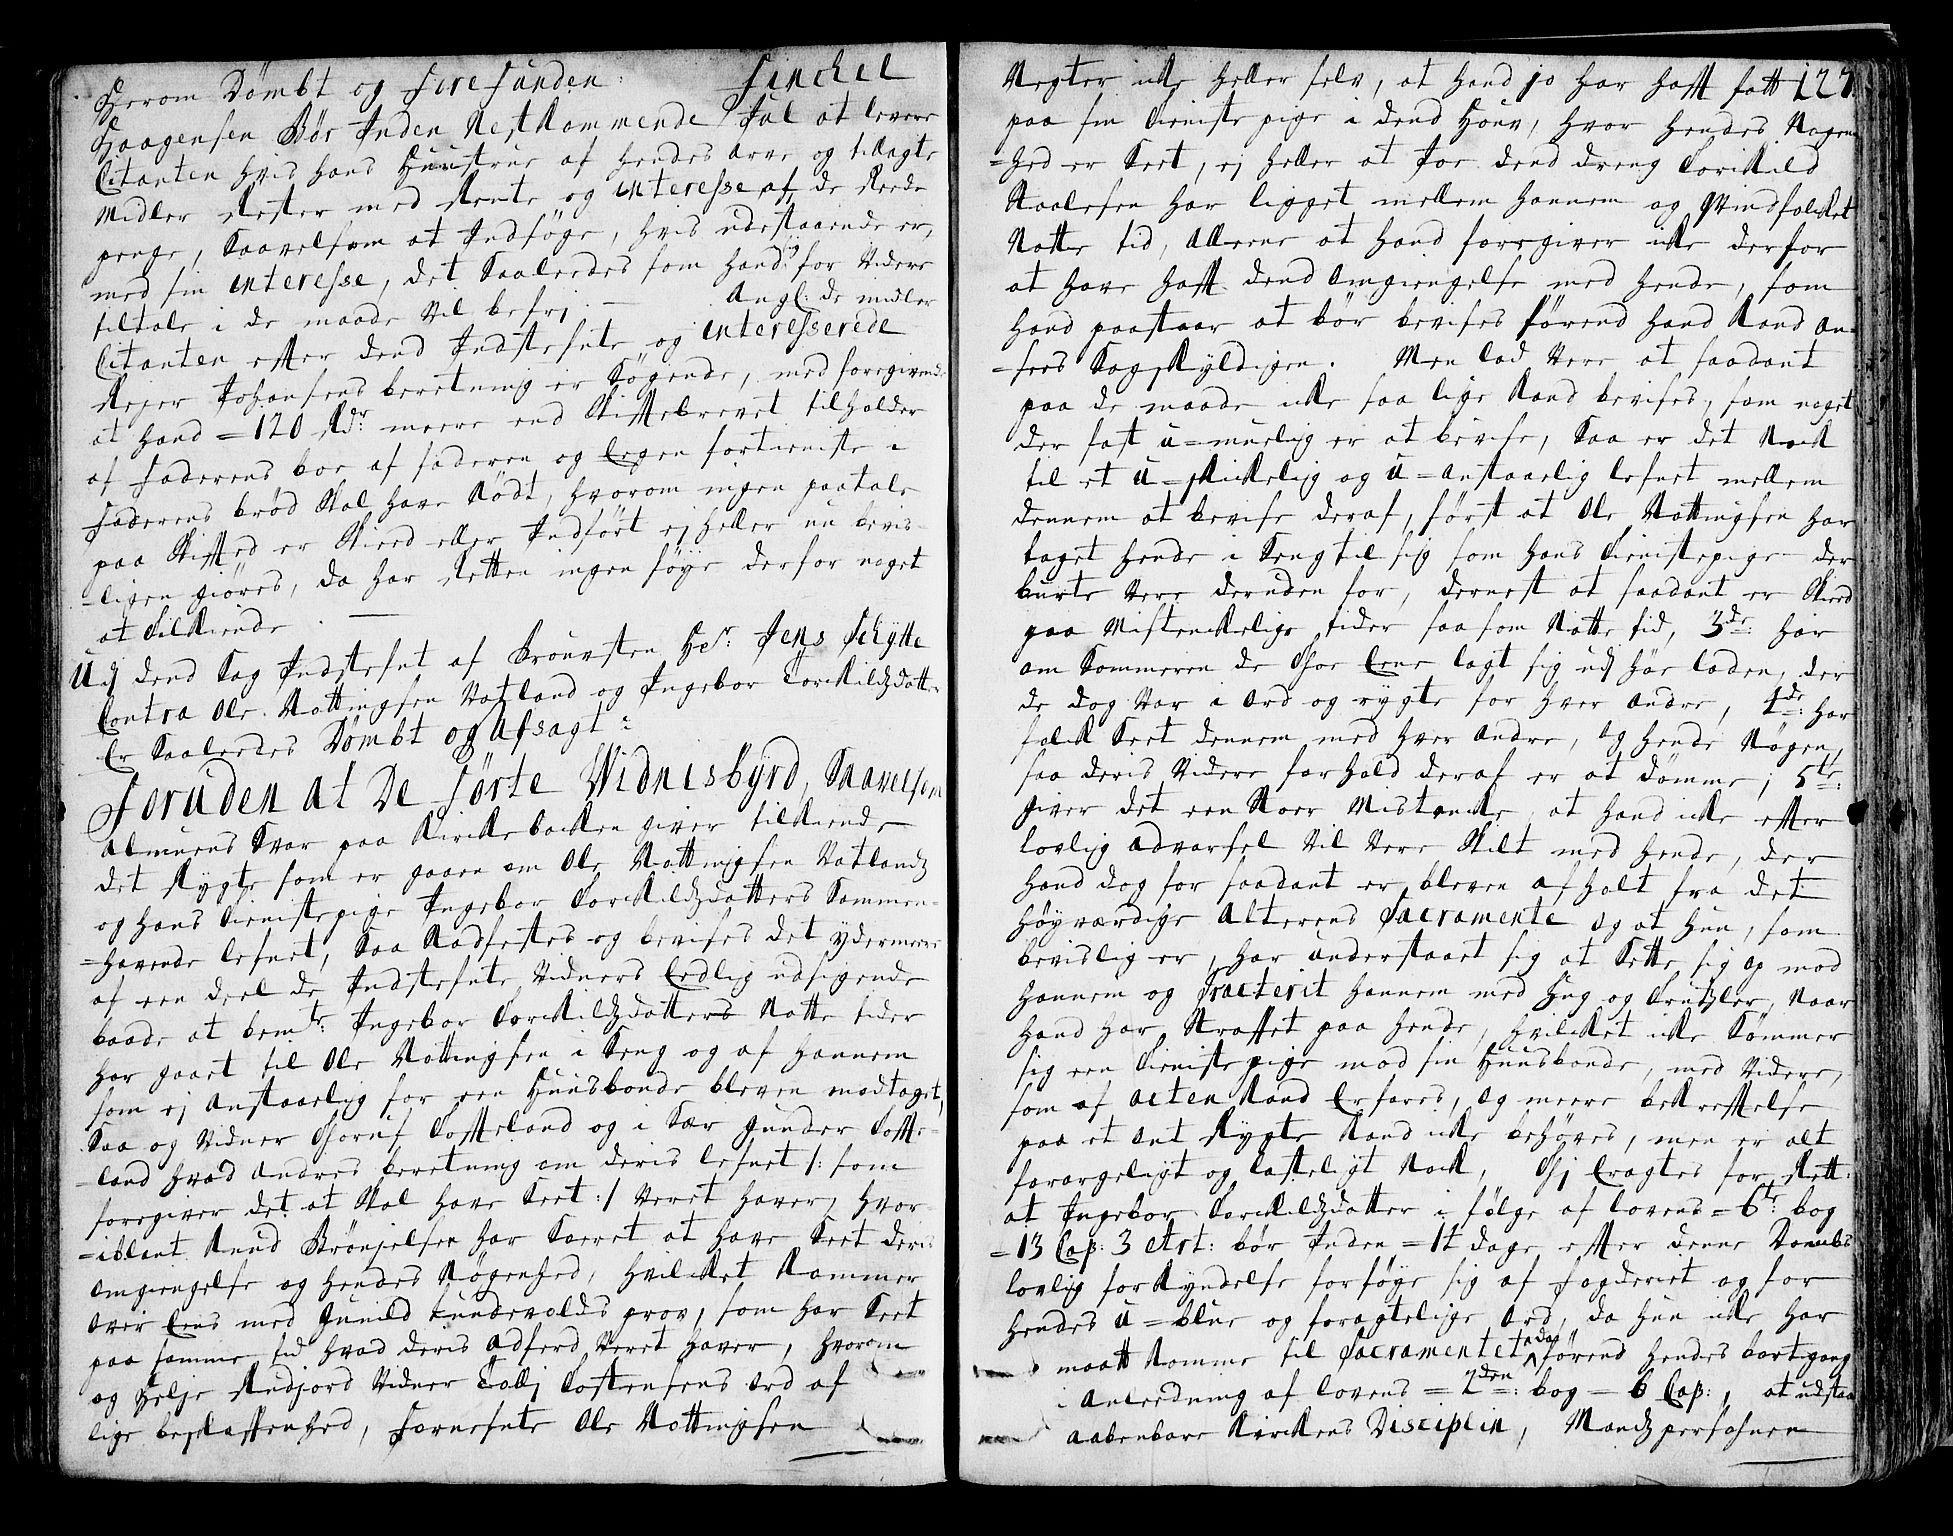 Herom Dömbt og forefunden: Finchel
Haagensen Bör Inden Nestkommende Jul at levere
Citanten hvis hans Huustrue af hendes arve og tillagte
Midler Rester med Rente og interesse af de Rede
penge, Saavelsom at Indsøge, hvis udestaaende er,
med sin interesse, det Saaledes som hand for Videre
tiltale i de maade vil befrj. — Angl: de midler
Citanten efter dend Indstefnte og interesserede
Rejer Johansens beretning er Søgende, med foregivende
at hand = 120 Rdr: meere end Skiftebrevet tilholder
af Faderens boe af faderen og Egen fortieniste i
Faderens brød Skal have Nödt, hvorom ingen paatale
paa Skifted er Skeed eller Indfört ej heller nu bevis-
=ligen giöres, da har Retten ingen föye derfor noget
at tilkiende. —
Udj dend Sag Indstefnt af Prousten Hr: Jens Schytte
Contra Ole Nottingsen Vatland og Ingebor Torkildzdotter
Er Saaledes Dömbt og Afsagt:
Foruden at De förte Widnisbyrd, Saavelsom
Almuens Svar paa Kirckebacken giver tilkiende
det Rygte som er gaaen om Ole Nottingsen Vatlandz
og hans tienistepige Ingebor Torkildzdotters Sammen-
=havende lefnet, Saa Stadfestes og bevises det ydermeere
af een deel de Indstefnte Vidners Eedlig udsigende
baade at bemte: Ingebor Torkildzdotters Natte tider
har gaaet til Ole Nottingsen i Seng og af hannem
som ej anstaarlig for een Huusbonde bleven modtaget,
Saa og Vidner Thorus Tofteland og i Sær Gunder Tofte-
=land hvad andres beretning om deris lefnet /: som
foregiver det at Skal have Seet :/ Veret haver, hvor-
=iblant Knud Brönjelsen har Svaret at have Seet deris
omgiengelse og hendes Nøgenhed, hvilcket kommer
over Eens med Gunild Kundevolds prov, som har Seet
paa samme tid hvad deris adferd Veret haver, hvorom
og Helje Rudjord Vidner Tollj Tostensens ord af
lige beskaffenhed, Fornefnte Ole Nottingsen
Negter icke heller selv, at hand jo har hafft fatt 127
paa sin tieniste pige i dend Houv, hvor hendes Nøgen-
=hed er Seet, ej heller at Joe dend dreng Torkild
Roalesen har ligget mellem hannem og Qvindfolcket
Natte tid, Alleene at hand foregiver icke derfor
at have hafft dend omgiengelse med hende, som
hand paastaar at bör bevises förend hand kand an-
=sees Sagskyldigen. Men lad Vere at saadant
paa de maade icke saa lige kand bevises, som noget
der fast u=muelig er at bevise, Saa er det Nock
til et u=skickelig og u=anstaarlig lefnet mellem
dennem at bevise deraf, först at Ole Nottingsen har
taget hende i Seng til sig som hans tienistepige der
burte Vere deruden for, dernest at saadant er Skeed
paa Mistenckelige tider saasom Natte tid, 3de: har
om Sommeren de Thoe Eene lagt sig udj höe laden, der
de dog Var i ord og rygte for hver andre, 4de: har
folck Seet dennem med hver andre, og hende Nøgen,
saa deris Videre forhold deraf er at dömme, 5te:
giver det een stoer Mistancke, at hand icke efter
lovlig advarsel vil Vere Skilt med hende, der
hand dog for saadant er bleven afholt fra det
höyværdige Alterens Sacramente og at hun, som
bevislig er, har understaaet sig at Sette sig op mod
hannem og Tracterit hannem med Hug og Trudzler, Naar
hand har Straffet paa hende, hvilcket icke Sömmer
sig een tieniste pige mod sin Huusbonde, med Videre,
som af Acten kand Erfares, og meere bekreftelse
paa et ont Rygte kand icke behöves, men er alt
forargeligt og lasteligt Nock, Thj Eragtes for Rett:
at Ingebor Torkildzdotter i fölge af lovens = 6te: bog
=13 Cap: 3 Art: bör Inden = 14 dage efter denne Dombs
lovlig forkyndelse forföye sig af Fogderiet og for
hendes u=blue og foragtelige ord, da hun icke har
maatt komme til Sacramentet, förend hendes bortgang
i anledning af lovens = 2den: bog = 6 Cap:, at udstaa
aabenbare Kirckens Disciplin, Mandzpersohnen